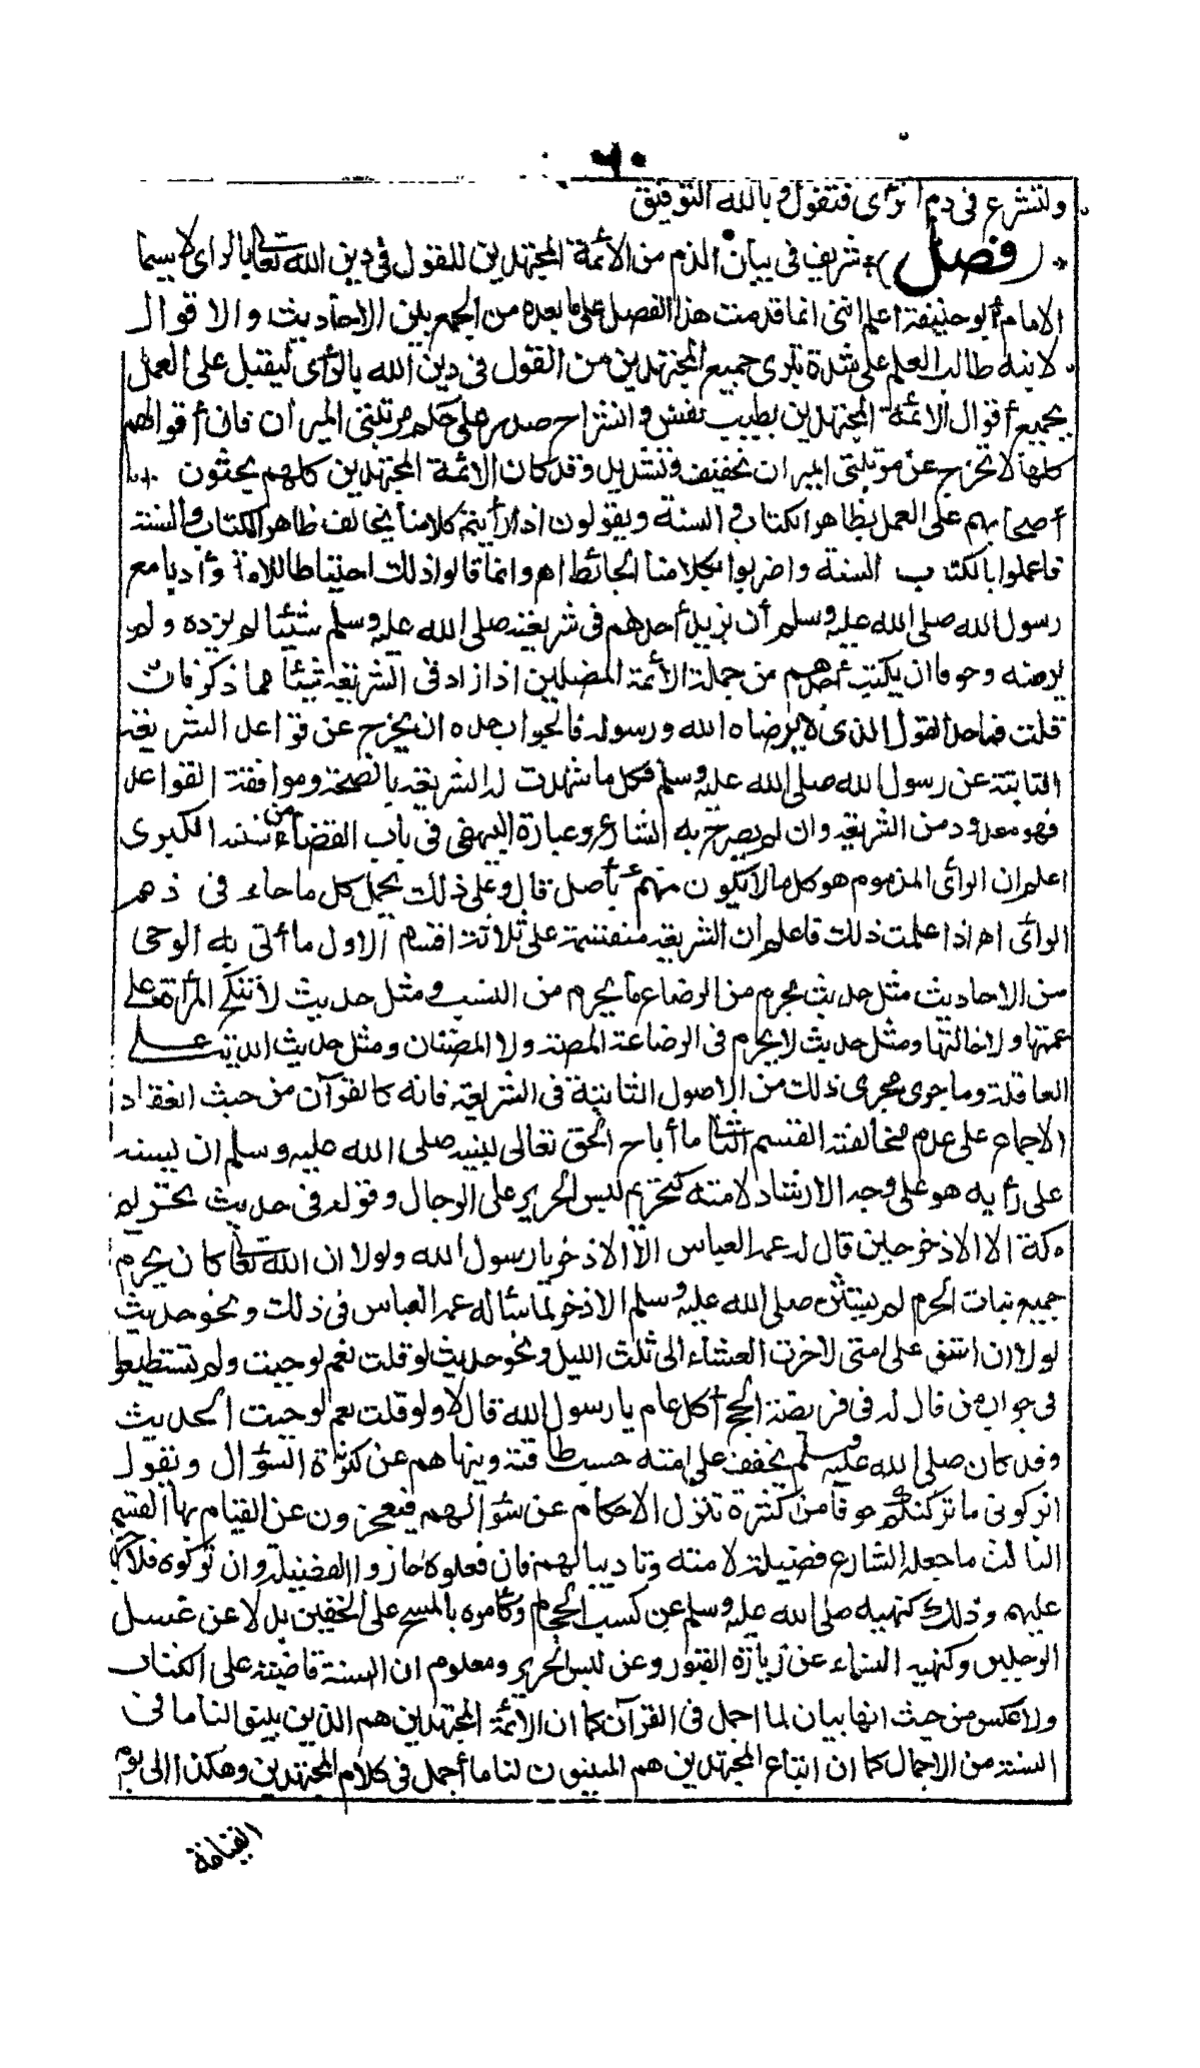 ٦٠
ولنشرع في ذم الرأي فنقول وبالله التوفيق
(فصل) شريف في بيان الذم من الأئمة المجتهدين للقول في دين الله تعالى بالرأي لا سيما
الامام أبو حنيفة اعلم انني انما قدمت هذا الفصل على ما بعده من الجمع بين الاحاديث والاقوال
لانبه طالب العلم على شدة تبري جميع المجتهدين من القول في دين الله بالرأي ليقبل على العمل
بجميع أقوال الائمة المجتهدين بطيب نفس وانشراح صدر على حكم مرتبتي الميزان فان أقوالهم
كلها لا تخرج عن مرتبتي الميزان تخفيف وتشديد وقد كان الائمة المجتهدين كلهم يحثون
أصحابهم على العمل بظاهر الكتاب والسنة ويقولون اذا رأيتم كلامنا يخالف ظاهر الكتاب والسنة
فاعملوا بالكتاب السنة واضربوا بكلامنا الحائط اهـ وانما قالوا ذلك احتياطا للامة وأدبا مع
رسول الله صلى الله عليه وسلم أن يزيد أحدهم في شريعته صلى الله عليه وسلم شيئا لم يرده ولم
يرضه وخوفا ان يكتب أحدهم من جملة الأئمة المضلين اذا زاد في الشريعة شيئا مما ذكر فان
قلت فما حد القول الذي لا يرضاه الله ورسوله فالجواب حده ان يخرج عن قواعد الشريعة
الثابتة عن رسول الله صلى الله عليه وسلم فكل ما شهدت له الشريعة بالصحة وموافقة القواعد
فهو معدود من الشريعة وان لم يصرح به الشارع وعبارة البيهقي في باب القضاء من سننه الكبرى
اعلم ان الرأي المذموم هو كل ما لا يكون بأصل قال وعلى ذلك يحمل كل ما جاء في ذم
الرأي اهـ اذا علمت ذلك فاعلم ان الشريعة منقسمة على ثلاثة اقسام الاول ما أتى به الوحي
من الاحاديث مثل حديث يحرم من الرضاع ما يحرم من النسب ومثل حديث لا تنكح المرأة على
عمتها ولا خالتها ومثل حديث لا يحرم في الرضاعة المصة ولا المصتان ومثل حديث الدية على
العاقلة وما جرى مجرى ذلك من الاصول الثابتة في الشريعة فانه كالقرآن من حيث انعقاد
الاجماع على عدم مخالفته القسم الثاني ما أباح الحق تعالى لنبيه صلى الله عليه وسلم ان يسنه
على رأيه هو على وجه الارشاد لامته كتحريم لبس الحرير على الرجال وقوله في حديث تحريم
مكة الا الاذخر حين قال له عمه العباس الا الاذخر يا رسول الله ولولا ان الله تعالى كان يحرم
جميع نبات الحرم لم يستثن صلى الله عليه وسلم الاذخر لما سأله عمه العباس في ذلك ونحو حديث
لولا ان اشق على امتي لاخرت العشاء الى ثلث الليل ونحو حديث لو قلت نعم لوجبت ولم تستطيعوا
في جواب من قال له في فريضة الحج أكل عام يا رسول الله قال لا ولو قلت نعم لوجبت الحديث
وقد كان صلى الله عليه وسلم يخفف على امته حسب طاقته وينهاهم عن كثرة السؤال ويقول
اتركوني ما تركتكم خوفا من كثرة تنزل الاحكام عن سؤالهم فيعجزون عن القيام بها القسم
الثالث ما جعله الشارع فضيلة لامته وتأديبا لهم فان فعلوه حازوا الفضيلة وان تركوه فلا حرج
عليهم وذلك كنهيه صلى الله عليه وسلم عن كسب الحجام وكأمره بالمسح على الخفين بدلا عن غسل
الرجلين وكنهيه النساء عن زيارة القبور وعن لبس الحرير ومعلوم ان السنة قاضية على الكتاب
ولا عكس من حيث انها بيان لما اجمل في القرآن كما ان الائمة المجتهدين هم الذين بينوا لنا ما في
السنة من الاجمال كما ان اتباع المجتهدين هم المبينون لنا ما أجمل في كلام المجتهدين وهكذا الى يوم
القيامة